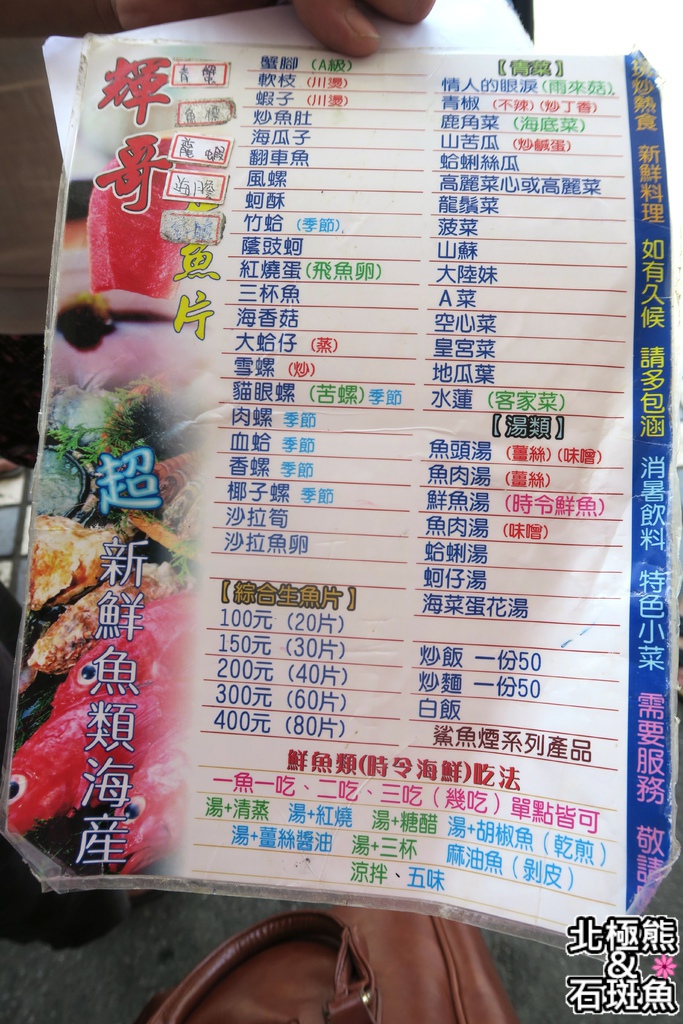 輝哥
生魚片
龍蝦
海膽
超
新鮮魚類海產
蟹腳（A級）
軟枝（川燙）
蝦子（川燙）
炒魚肚
海瓜子
翻車魚
風螺
蚵酥
竹蛤（季節）
蔭豉蚵
紅燒蛋（飛魚卵）
三杯魚
海香菇
大蛤仔（蒸）
雪螺（炒）
貓眼螺（苦螺）季節
肉螺 季節
血蛤 季節
香螺 季節
椰子螺 季節
沙拉筍
沙拉魚卵
【綜合生魚片】
100元（20片）
150元（30片）
200元（40片）
300元（60片）
400元（80片）
【青菜】
情人的眼淚（雨來菇）
青椒（不辣）（炒丁香）
鹿角菜（海底菜）
山苦瓜（炒鹹蛋）
蛤蜊絲瓜
高麗菜心或高麗菜
龍鬚菜
菠菜
山蘇
大陸妹
A菜
空心菜
皇宮菜
地瓜葉
水蓮（客家菜）
【湯類】
魚頭湯（薑絲）（味噌）
魚肉湯（薑絲）
鮮魚湯（時令鮮魚）
魚肉湯（味噌）
蛤蜊湯
蚵仔湯
海菜蛋花湯
炒飯 一份50
炒麵 一份50
白飯
鯊魚煙系列產品
鮮魚類(時令海鮮)吃法
一魚一吃、二吃、三吃（幾吃）單點皆可
湯+清蒸 湯+紅燒 湯+糖醋 湯+胡椒魚（乾煎）
湯+薑絲醬油 湯+三杯 麻油魚（剝皮）
涼拌、五味
現炒熱食 新鮮料理 如有久候 請多包涵 消暑飲料 特色小菜 需要服務 敬請
北極熊
&
石斑魚